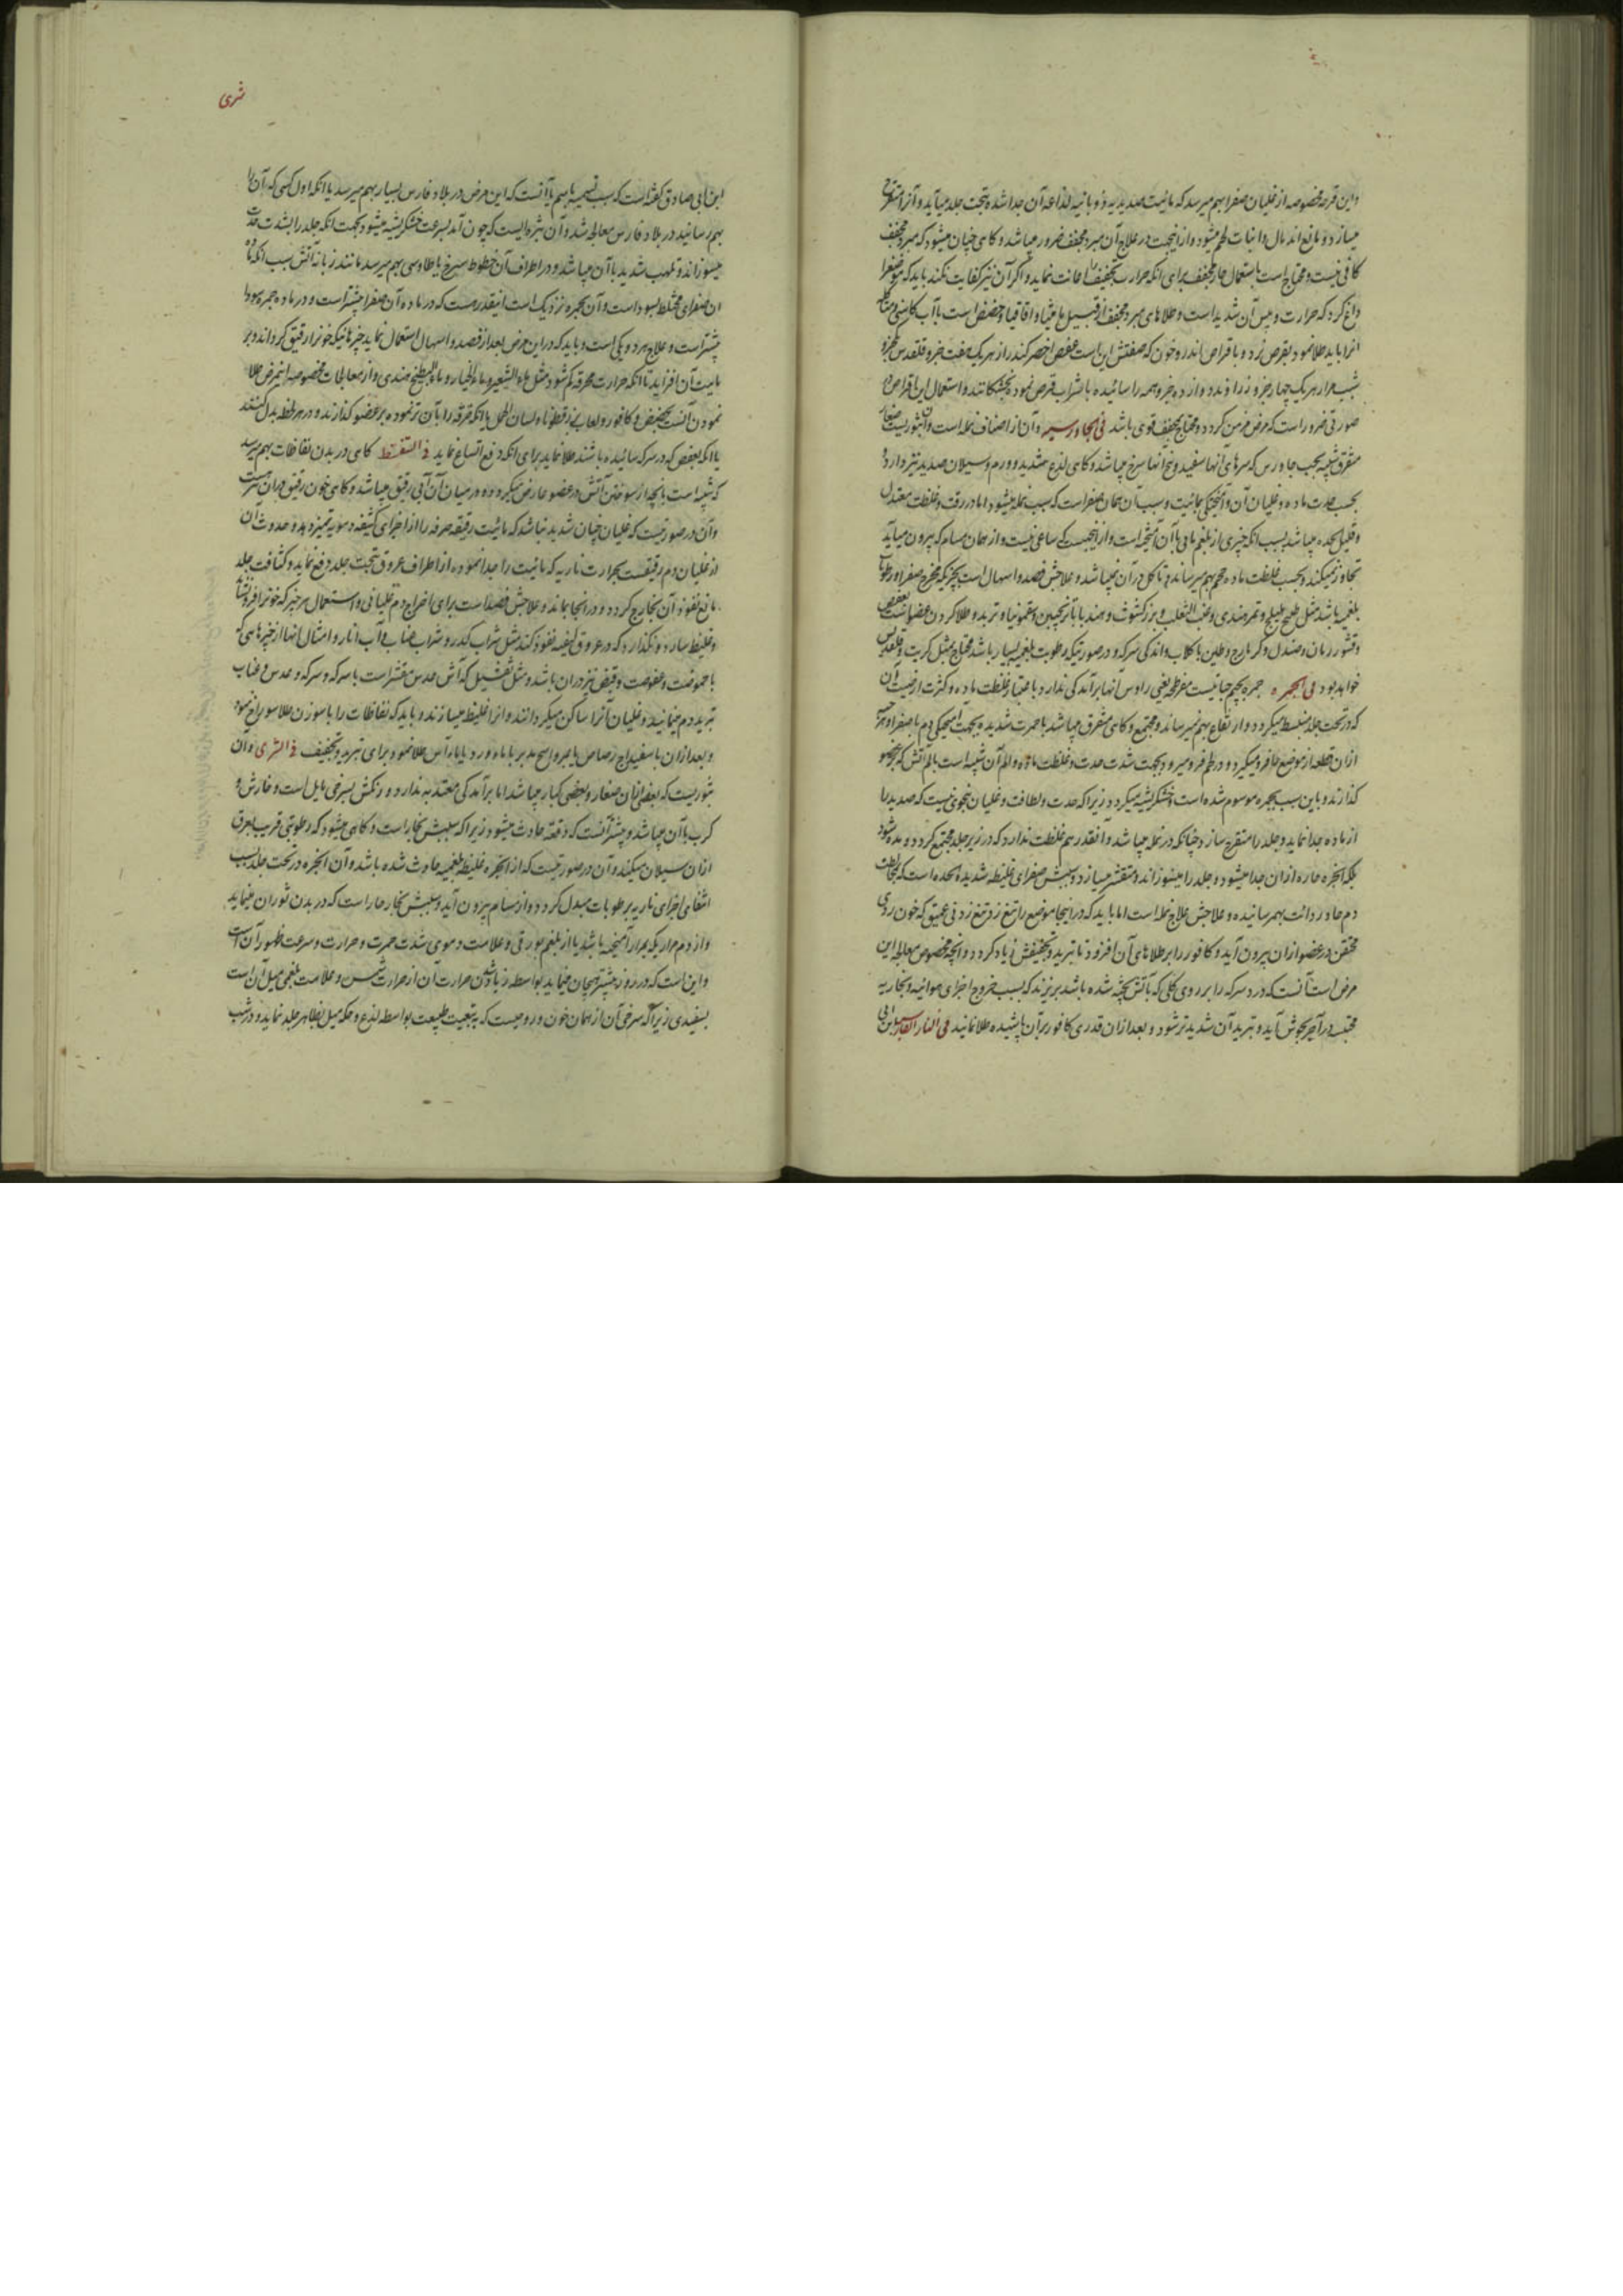 واین قرحه مخصوصه از غلیان صفرا بهم میرسد که مائیت صدیدیه و ذوبانیه لذاعه آن جدا شده تحت جلد میآید و آنرا متقرح
میسازد و مانع اندمال و انبات لحم میشود و از اینجهت در علاج آن مبرد مجفف ضرور میباشد و کاهی چنان میشود که مبرد مجفف
کافی نیست و محتاج است باستعمال حار مجفف برای انکه حرارت تجفیف را اعانت نماید و اکر آن نیز کفایت نکند باید که موضع را
داغ کرد که حرارت و یبس آن شدید است و طلاهای مبرد مجفف از قبیل مامیثا و اقاقیا و حضض است با آب کاسنی
انرا باید طلا نمود بقرص نزد و باقراص اندروخون که صفتش این است عفص اخضر کندر از هریک هفت جزو قلقدیس
شب مرار هریک چهار جزو زراوند دوازده جزو همه را سائیده با شراب قرص نموده بخشکانند و استعمال این اقراص در
صورتی ضرور است که مرض مزمن کردد و محتاج بمجفف قوی باشد فی الجاورسیه و آن از اصناف نمله است و آن بثوریست صغار
متفرق شبیه بحب جاورس که سرهای آنها سفید و بیخ آنها سرخ میباشد و کاهی لذع شدید و ورم و سیلان صدید نیز دارد
بحسب حدت ماده و غلیان آن و آمیختکی بمائیت و سبب آن همان صفرا است که سبب نمله میشود اما در رقت و غلظت معتدل
و قلیل الحده میباشد بسبب انکه چیزی از بلغم مائی باآن آمیخته است و از اینجهت که ساعی نیست و از همان مسام که بیرون میآید
تجاوز نمیکند و بحسب غلظت ماده حجم بهم میرساند و تاکل در آن نمیباشد و علاجش فصد و اسهال است بچیزیکه مخرج صفرا و رطوبات
بلغمیه باشد مثل طبیخ هلیلج و تمر هندی و عنب الثعلب و بزر کشوث و هندبا با ترنجبین و سقمونیا و تربد و طلا کردن عضو است بعفص
و قشور رمان و صندل و طین با کلاب و اندکی سرکه و در صورتیکه رطوبت بلغمیه بسیار باشد محتاج بمثل کبریت و قلقدیس
خواهد بود فی الجمره جمره بجیم حبابیست مفرطحه یعنی راوس آنها برآمدکی ندارد باعتبار غلظت ماده و کثرت ارضیت آن
که در تحت جلد منبسط میکردد و ارتفاع بهم نمیرساند و مجتمع و کاهی متفرق میباشد با حمرت شدیده بجهت آمیختکی دم با صفرا
ازان قطعه از موضع را فرو میکیرد و در لحم فرو میرود بجهت شدت حدت و غلظت ماده و الم آن شبیه است بالم آتش که بر عضو
کذارند و باین سبب بجمره موسوم شده است و خشکریشه میکردد زیرا که حدت و لطافت و غلیان بنحوی نیست که صدید را
از ماده جدا نماید و جلد را متقرح سازد چنانکه در نمله میباشد و آنقدر هم غلظت ندارد که در زیر جلد مجتمع کردد و مده شود
بلکه ابخره حاره ازان جدا میشود و جلد را میسوزاند و متقشر میسازد و سببش صفرای غلیظه شدیده الحده است که بمخالطت
دم حاد ردائت بهمرسانیده و علاجش علاج نمله است اما باید که در اینجا موضع را تیغ زد تیغ زدنی عمیق که خون ردی
محتقن در عضو ازان بیرون آید و کافور را بر طلاهای آن افزود تا تبرید و تجفیفش زیاد کردد و انچه مخصوص معالجه این
مرض است آنست که درد سرکه را بر روی کلی که بآتش پخته شده باشد بریزند که بسبب خروج اجزای هوائیه و بخاریه
محتبسه در آجر بجوش آید و تبرید آن شدیدتر شود و بعد ازان قدری کافور بر آن پاشیده طلا نمایند فی النار الفارسیه
شری
ابن ابی صادق گفته است که سبب تسمیه باسم باآنست که این مرض در بلاد فارس بسیار بهم میرسد یا انکه اول کسی که آن را
بهم رسانید در بلاد فارس معالج شد و آن بثره ایست که چون آمد بسرعت خشکریشه میشود بجهت انکه جلد را بشدت حدت
میسوزاند و تلهب شدید باآن میباشد و در اطراف آن خطوط سرخ یا طاوسی بهم میرسد مانند زبانه آتش بسبب انکه ماده
ان صفرای مختلط بسودا است و آن بجمره نزدیک است اینقدر هست که در ماده آن صفرا بیشتر است و در ماده جمره سودا
بیشتر است و علاج هر دو یکی است و باید که در این مرض بعد از فصد و اسهال استعمال نماید چیزهائیکه خون را رقیق کرداند و بر
مائیت آن افزاید تا انکه حرارت محرقه کم شود مثل ماء الشعیر و ماء الخیار و ماء البطیخ هندی و از معالجات مخصوصه اینمرض طلا
نمودن آنست بحضض و کافور و لعاب بزرقطونا و لسان الحمل یا انکه خرقه را بآن تر نموده بر عضو کذارند و در هر لحظه بدل کنند
یا انکه بعفص که در سرکه سائیده باشند طلا نماید برای انکه دفع اتساع نماید فی التنفط کاهی در بدن نفاطات بهم میرسد
که شبیه است بانچه از سوختن آتش در عضو عارض میکردد و در میان آن آبی رقیق میباشد و کاهی خون رقیق دران
و آن در صورتیست که غلیان چنان شدید نباشد که مائیت رقیقه صرفه را از اجزای کثیفه دمویه تمیز دهد و حدوث آن
از غلیان دم رقیقست بحرارت ناریه که مائیت را جدا نموده از اطراف عروق بتحت جلد دفع نماید و کثافت جلد
مانع نفوذ آن بخارج کردد و در انجا بماند و علاجش فصد است برای اخراج دم غلیانی و استعمال هر چیز که خون را فرو نشاند
و غلیظ سازد و نکذارد که در عروق لیفیه نفوذ کند مثل شراب کدر و شراب عناب و آب انار و امثال انها از چیزهائی که
با حموضت و عفوصت و قبض نیز دران باشد و مثل تفشیل که آش عدس مقشر است با سرکه و سرکه و عدس و عناب
تبرید دم مینمایند و غلیان آنرا ساکن میکردانند و انرا غلیظ میسازند و باید که نفاطات را با سوزن طلا سوراخ نمود
و بعد ازان با سفیداج رصاص یا مبرد اسنج مدبر با ماء ورد یا با ماء آس طلا نمود برای تبرید و تجفیف فی الشری و ان
بثوریست که بعضی ازان صغار و بعضی کبار میباشد اما برآمدکی معتد به ندارد و رنکش بسرخی مایل است و خارش و
کرب باآن میباشد و بیشتر آنست که دفعة حادث میشود زیرا که سببش بخار است و کاهی میشود که رطوبتی قریب بعرق
ازان سیلان میکند و آن در صورتیست که از ابخره غلیظه بلغمیه حادث شده باشد و آن ابخره در تحت جلد بسبب
انتفای اجزای ناریه برطوبات مبدل کردد و از مسام بیرون آید و سببش بخار حار است که در بدن ثوران مینماید
و از دم مراریکه بمرار آمیخته باشد یا از بلغم بورقی و علامت دموی شدت حمرت و حرارت و سرعت ظهور آن است
و این است که در روز بیشتر هیجان مینماید بواسطه زیاد شدن حرارت آن از حرارت شمس و علامت بلغمی میل آن است
بسفیدی زیرا که سرخی آن از همان خون و روحیست که به تبعیت طبیعت بواسطه لذع و حکه میل بظاهر جلد نماید و در شب